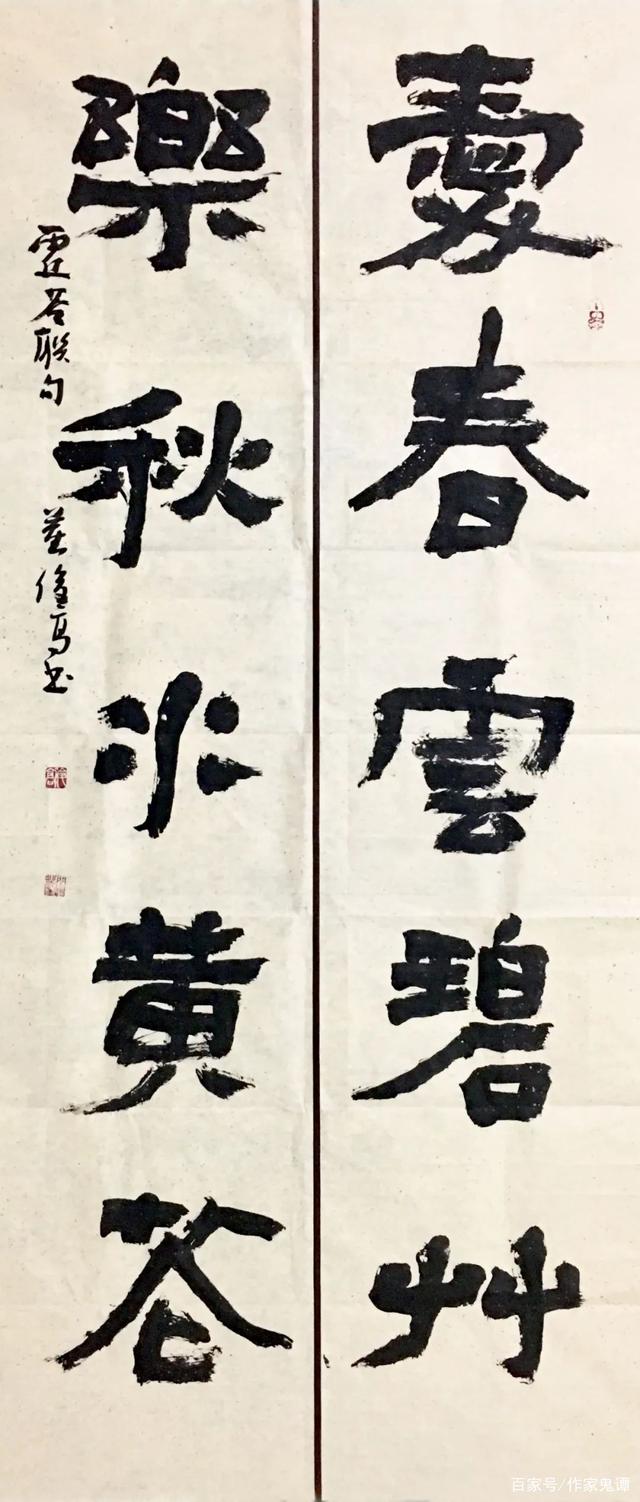 愛春雲碧艸
樂秋水黃花
聯句
百家号/作家鬼谭